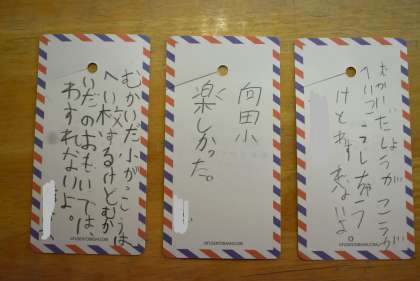 むかいだ小がっこうは
へい校するけどむか
いだのおもいでは、
わすれないよ。
向田小
楽しかった。
むかいだしょうがっこうが
へいこうしちゃう
けどわすれないよ